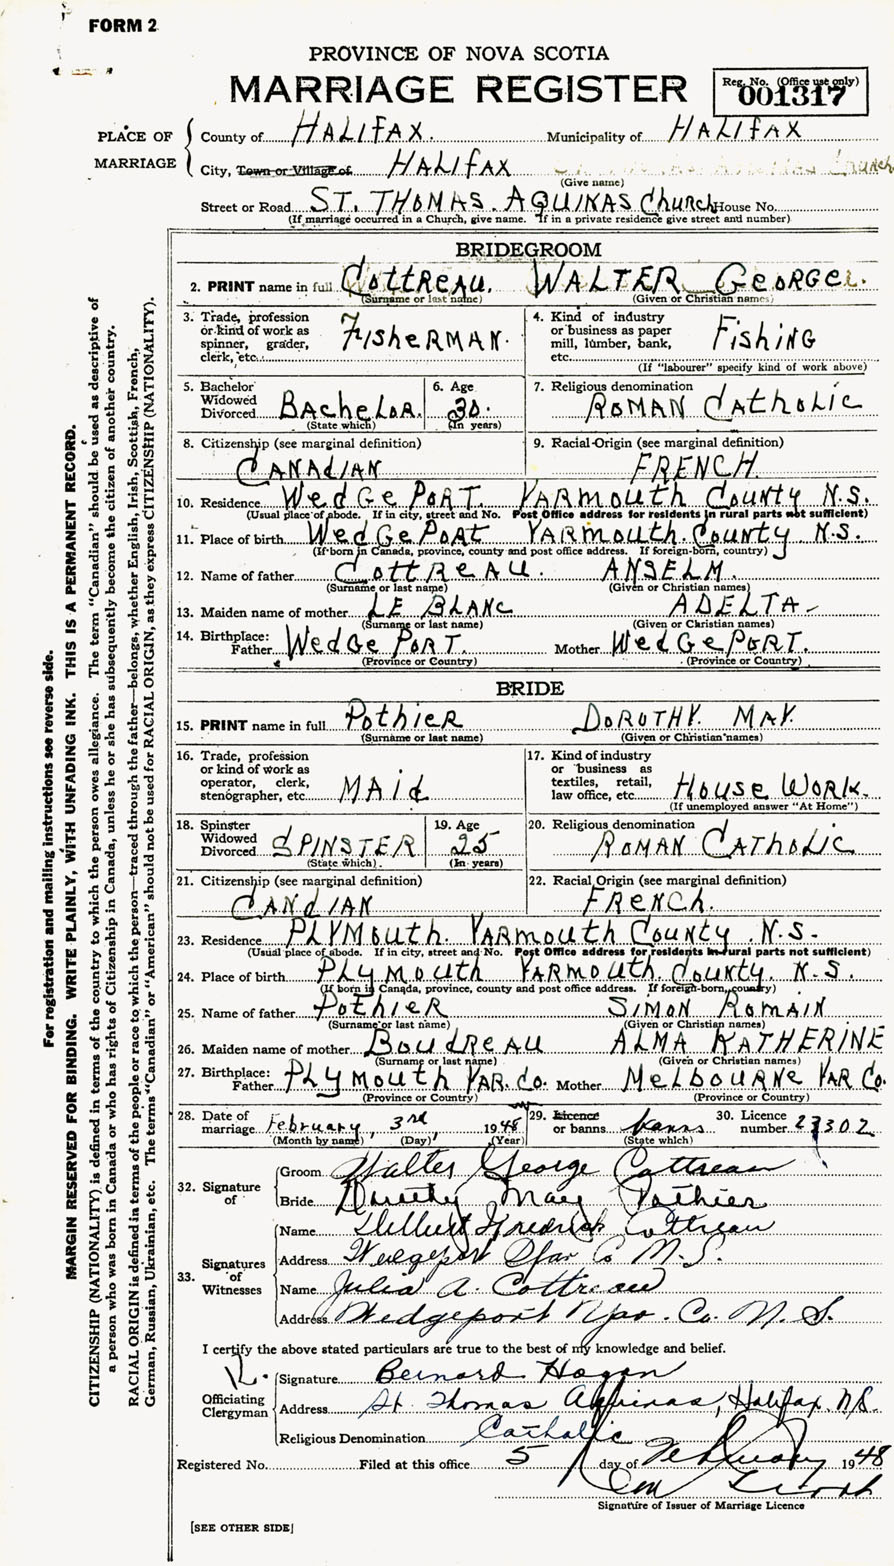 FORM 2
PROVINCE OF NOVA SCOTIA
MARRIAGE REGISTER
Reg. No. (Office use only)
001317
PLACE OF MARRIAGE
County of HALIFAX. Municipality of HALIFAX
City, Town or Village of HALIFAX
(Give name)
Street or Road ST. THOMAS. AQUINAS Church House No.
(If marriage occurred in a Church, give name. If in a private residence give street and number)
BRIDEGROOM
2. PRINT name in full Cottreau. WALTER George.
(Surname or last name) (Given or Christian names)
3. Trade, profession or kind of work as spinner, grader, clerk, etc. FisheRMAN.
4. Kind of industry or business as paper mill, lumber, bank, etc. FishiNG
(If "labourer" specify kind of work above)
5. Bachelor Widowed Divorced BAcheLOR. (State which)
6. Age 30. (In years)
7. Religious denomination ROMAN CAtholic
8. Citizenship (see marginal definition) CANAdiAN
9. Racial-Origin (see marginal definition) FRENCH.
10. Residence WedGePoRT. YARMouth County N.S.
(Usual place of abode. If in city, street and No. Post Office address for residents in rural parts not sufficient)
11. Place of birth WedGePoRt YARMouth. County N.S.
(If born in Canada, province, county and post office address. If foreign-born, country)
12. Name of father CottReau. ANSELM.
(Surname or last name) (Given or Christian names)
13. Maiden name of mother LE BLANC ADELTA-
(Surname or last name) (Given or Christian names)
14. Birthplace: Father WedGe PoRT. Mother WedGePoRT.
(Province or Country) (Province or Country)
BRIDE
15. PRINT name in full PothieR DOROTHY. MAY.
(Surname or last name) (Given or Christian names)
16. Trade, profession or kind of work as operator, clerk, stenographer, etc MAid
17. Kind of industry or business as textiles, retail, law office, etc. House Work.
(If unemployed answer "At Home")
18. Spinster Widowed Divorced SPINSTER (State which)
19. Age 25 (In years)
20. Religious denomination ROMAN CATholic
21. Citizenship (see marginal definition) CANdiAN
22. Racial Origin (see marginal definition) FRENCh.
23. Residence PLYMouth. YARMouth County. N.S.
(Usual place of abode. If in city, street and No. Post Office address for residents in rural parts not sufficient)
24. Place of birth PLyMouth YARMouth County. N.S.
(If born in Canada, province, county and post office address. If foreign-born, country)
25. Name of father PothieR SiMON RoMAIN
(Surname or last name) (Given or Christian names)
26. Maiden name of mother BoudReau ALMA KATHERINE
(Surname or last name) (Given or Christian names)
27. Birthplace: Father PLyMouth YAR. Co. Mother MeLbouRNe YAR Co.
(Province or Country) (Province or Country)
28. Date of marriage February, 3rd, 1948
(Month by name) (Day) (Year)
29. Licence or banns banns (State which)
30. Licence number 27302
32. Signature of
Groom Walter George Cottreau
Bride Dorothy May Pothier
33. Signatures of Witnesses
Name Fredrick Cottreau
Address Wedgeport Yar Co N.S.
Name Julia A. Cottreau
Address Wedgeport Yar. Co. N.S.
I certify the above stated particulars are true to the best of my knowledge and belief.
Officiating Clergyman
Signature Bernard Hogan
Address St. Thomas Aquinas, Halifax. N.S.
Religious Denomination Catholic
Registered No. Filed at this office 5 day of February 1948
Signature of Issuer of Marriage Licence
[SEE OTHER SIDE]
For registration and mailing instructions see reverse side.
MARGIN RESERVED FOR BINDING. WRITE PLAINLY, WITH UNFADING INK. THIS IS A PERMANENT RECORD.
CITIZENSHIP (NATIONALITY) is defined in terms of the country to which the person owes allegiance. The term "Canadian" should be used as descriptive of
a person who was born in Canada or who has rights of Citizenship in Canada, unless he or she has subsequently become the citizen of another country.
RACIAL ORIGIN is defined in terms of the people or race to which the person—traced through the father—belongs, whether English, Irish, Scottish, French,
German, Russian, Ukrainian, etc. The terms "Canadian" or "American" should not be used for RACIAL ORIGIN, as they express CITIZENSHIP (NATIONALITY).